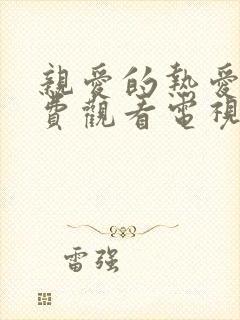 親愛的熱愛
費觀看電視
雷強